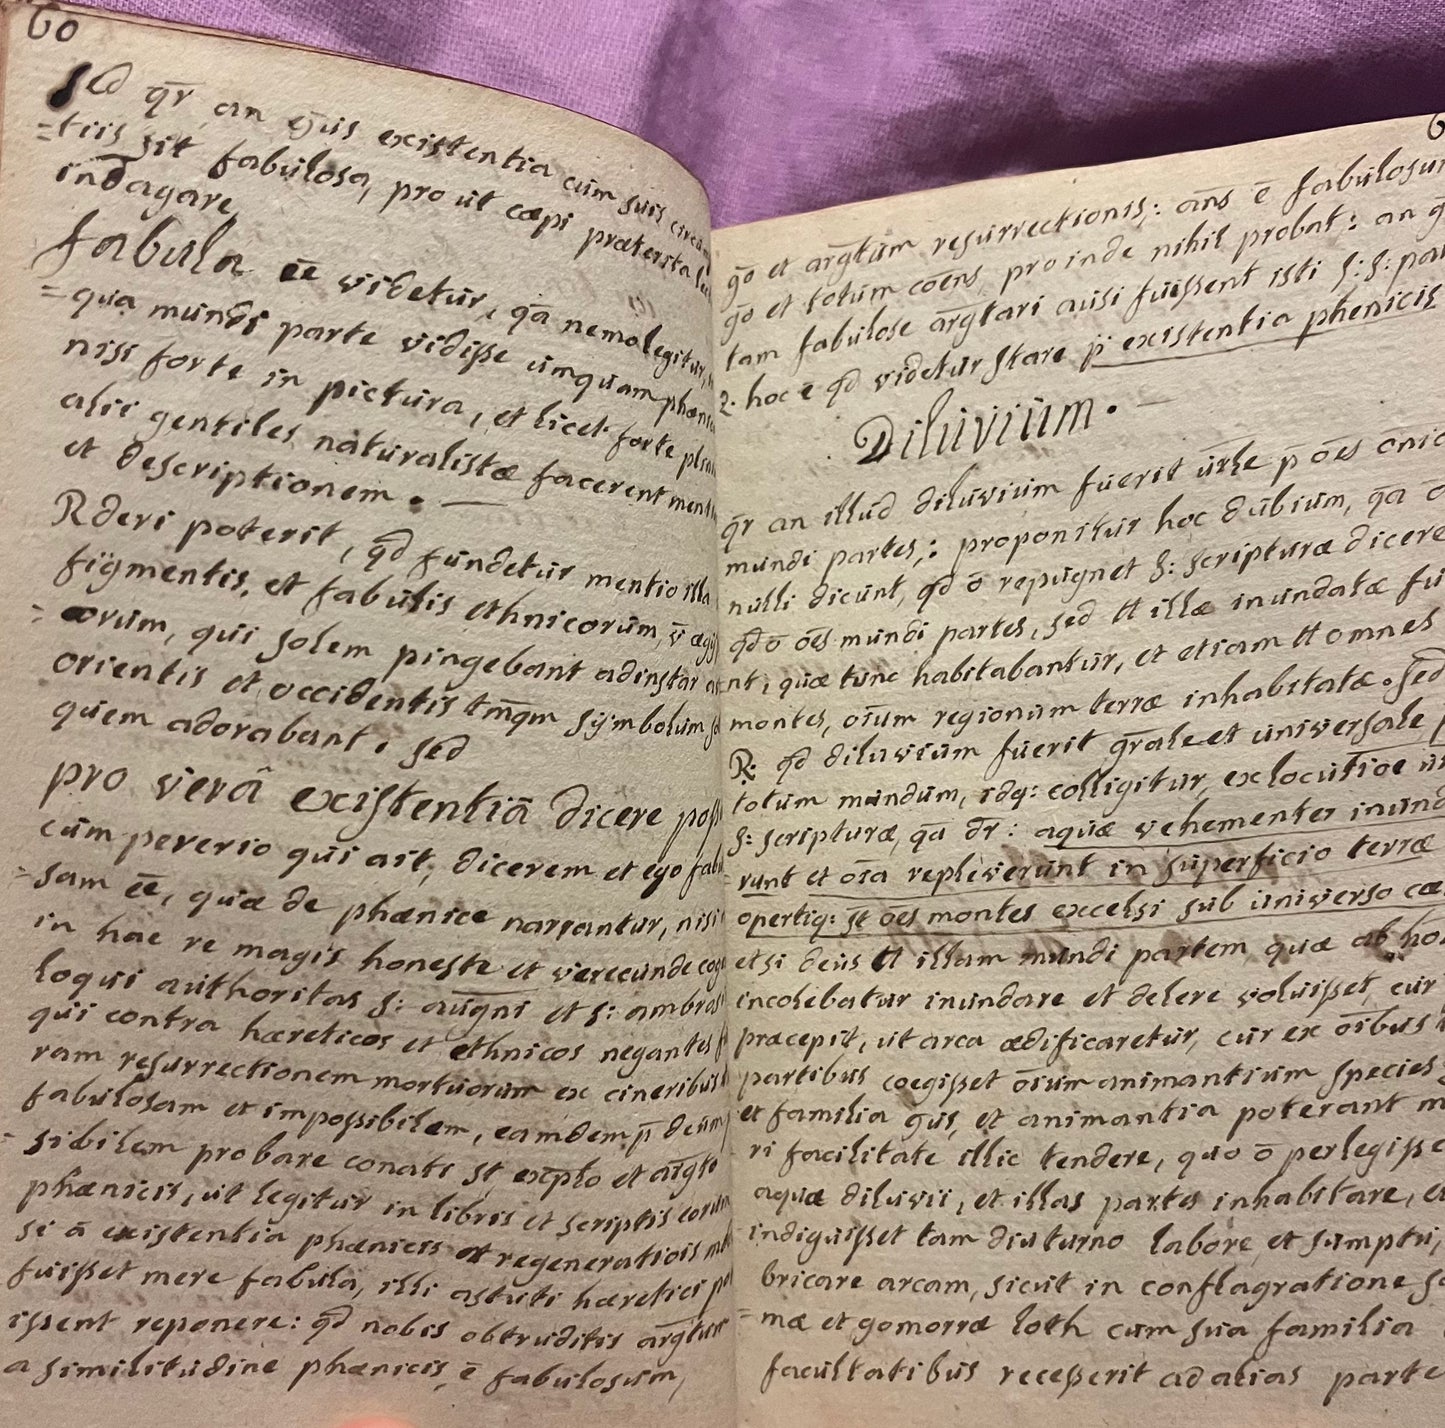 60
Sed q̄r an ej̄us existentia cūm sūis circūm
=tiis sit fabūlosa, pro ūt cæpi præterita
indagare
fabūla ēē videtūr, q̄a nemo legitūr,
= qūa mūndi parte vidisse ūmqūam phœni
nisi forte in pictūra, et licet forte
alii gentiles natūralistæ facerent ment
et descriptionem. —
Rderi poterit, q̄d fūndetūr mentio illa
figmentis, et fabūlis ethnicorūm, v̄ ægy
= orūm, qūi solem pingebant adinstar
orientis et occidentis tm̄qm sÿmbolūm
qūem adorabant. sed
pro verâ existentiā dicere poss
cūm pererio qūi ait, dicerem et ego fabū
= sam ēē, qūæ de phœnice narrantūr, nisi
in hac re magis honeste et verecūnde cog
loqūi aūthoritas S: aūgn̄i et S: ambros
qūi contra hæreticos et ethnicos negantes
ram resūrrectionem mortūorūm ex cineribūs
fabūlosam et impossibilem, eamdem p̄ deūm
= sibilem probare conati st̄ exp̄lo et ar̄gto
phœnicis, ūt legitūr in libris et scriptis eorūm
si ā existentia phœnicis et regeneratiois
fūisset mere fabūla, illi astūti hæretici
issent reponere: q̄d nobis obtrūditis ar̄gtūm
a similitūdine phœnicis, ē fabūlosūm,
6
ḡo et ar̄gtūm resūrrectionis: an̄s ē fabūlosūm
ḡo et totūm coēns, proinde nihil probat: an
tam fabūlose ar̄gtari aūsi fūissent isti S:S: pa
2. hoc ē q̄d videtūr stare p̄ existentia phenicis
Dilūviūm. —
q̄r an illūd dilūviūm fūerit ūr̄le p̄ oēs
mūndi partes,: proponitūr hoc dūbiūm, q̄a
nūlli dicūnt, q̄d ō repūgnet S: scriptūræ dicere
q̄d ō oēs mūndi partes, sed tt illæ inūndatæ fū
nt, qūæ tūnc habitabantūr, et etiam tt omnes
montes, oiūm regionūm terræ inhabitatæ. sed
R: q̄d dilūviūm fūerit gr̄ale et ūniversale
totūm mūndūm, idq: colligitūr, ex locūtioē
S: scriptūræ, q̄a dr̄: aqūæ vehementer inūnd
rūnt et oīa repleverūnt in sūperficie terræ
opertiq: st̄ oēs montes excelsi sūb ūniverso cæ
et si deūs tt illam mūndi partem qūæ ab ho
incolebatūr inūndare et delere volūisset, cūr
præcepit, ūt arca ædificaretūr, cūr ex oībūs
partibūs coegisset oiūm animantiūm species
et familia ej̄ūs, et animantia poterant
ri facilitate illic tendere, qūo ō perlegisse
aqūæ dilūvii, et illas partes inhabitare,
indigūisset tam diūtūrno labore, et sūmptū,
bricare arcam, sicūt in conflagratione So
= mæ et gomorræ loth cūm sūa familia
facūltatibūs recesserit ad alias parte